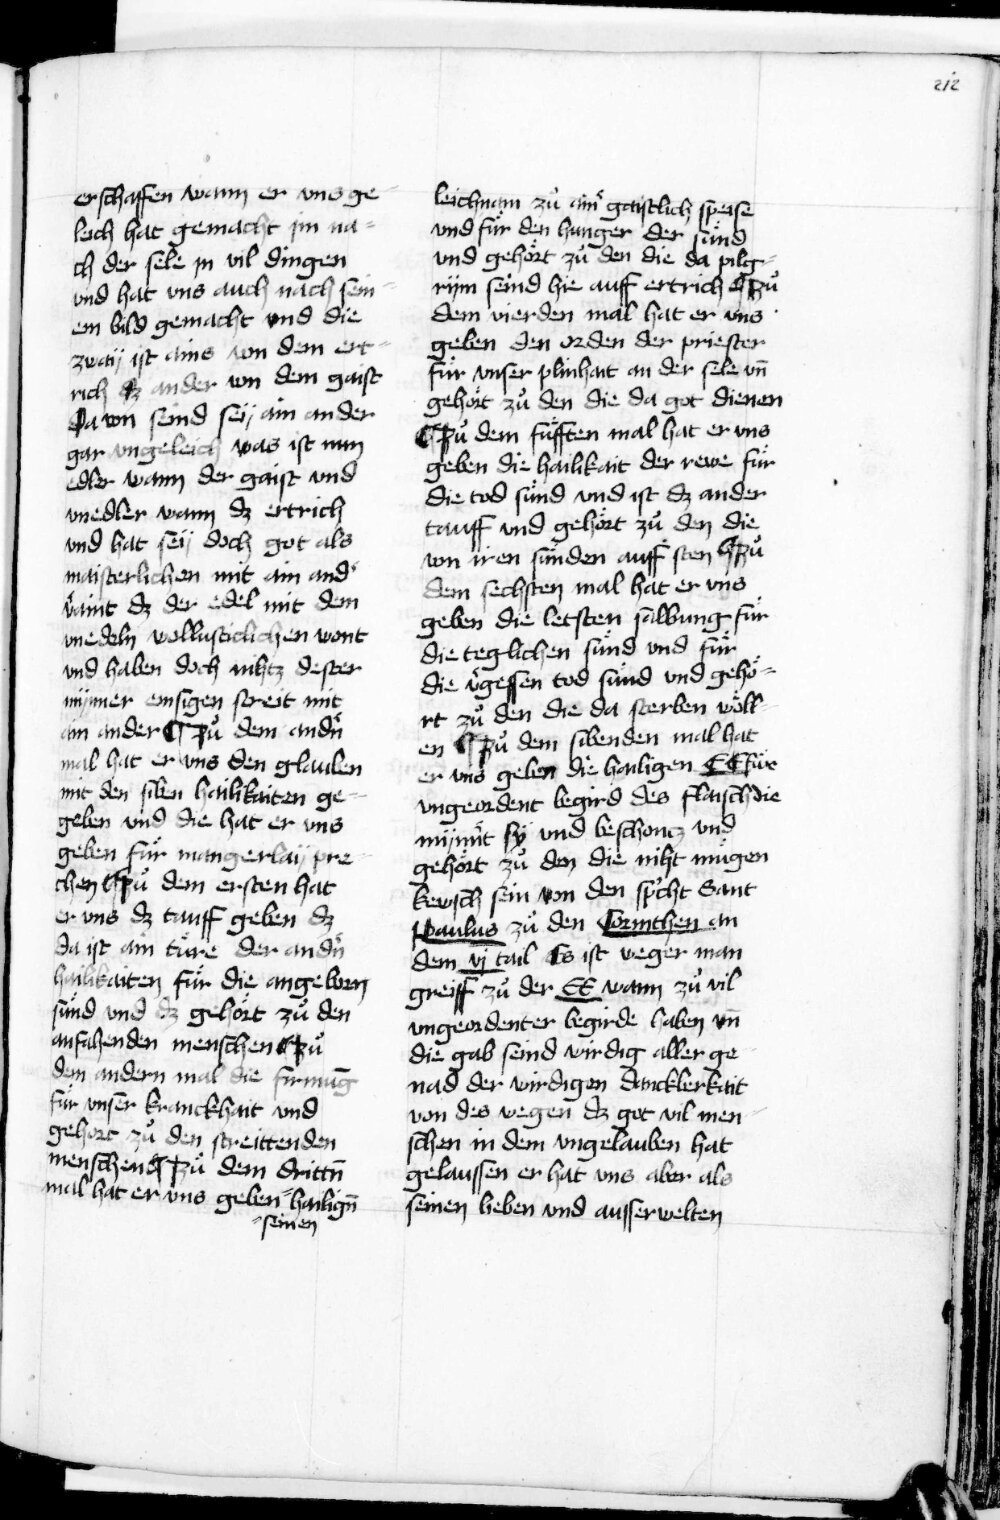 212
erschaffen wann er vns ge-
leich hat gemacht jm na-
ch der sele jn vil dingen
vnd hat vns auch nach sein-
em bild gemacht vnd die
zwaij ist ains von dem ert-
rich dz ander von dem gaist
Da von seind seij ain ander
gar vngeleich was ist nun
edler wann der gaist vnd
vnedler wann dz ertrich
vnd hat seij doch got als
maisterlichen mit ain and
dz der edel mit dem
vnedeln wollusticlichen wont
vnd haben doch nihtz dester
mijnner emsigen streit mit
ain ander ¶ Zů dem andn̄
mal hat er vns den glauben
mit den siben hailikaiten ge-
geben vnd die hat er vns
geben für mangerlaij pre-
chen ¶ Zů dem ersten hat
er vns dz tauff geben dz
da ist ain türe der andn̄
hailikaiten für die angeborn
sünd vnd dz gehört zů den
anfahenden menschen ¶ Zů
dem andern mal die firmūg
für vnser kranckhait vnd
gehort zů den streittenden
menschen ¶ Zů dem drittn̄
mal hat er vns geben = hailign̄
= seinen
leichnam zů ain gaistlich speise
vnd für den hunger der sünd
vnd gehört zů den die da pilg-
rijm seind hie auff ertrich ¶ Zů
dem vierden mal hat er vns
geben den orden der priester
für vnser plinhait an der sele vn̄
gehört zů den die da got dienen
¶ Zů dem füfften mal hat er vns
geben die hailikait der rewe für
die tod sünd vnd ist dz ander
tauff vnd gehört zů den die
von iren sünden auff sten ¶ Zů
dem sechsten mal hat er vns
geben die letsten salbung für
die teglichen sünd vnd für
die v̄gessen tod sünd vnd gehö-
rt zů den die da sterben wöll-
en ¶ Zů dem sibenden mal hat
er vns geben die hailigen EE für
vngeordent begird des flaisch die
mijnn̄t sÿ vnd beschontz vnd
gehört zů den die niht mügen
kewsch sein von den sp̄cht Sant
Paulus zů den Corinthen an
dem vj tail Es ist weger man
greiff zů der EE wann zů vil
vngeordenter begirde haben vn̄
die gab seind wirdig aller ge-
nad der wirdigen danckberkait
von des wegen dz got vil men-
schen in dem vngelauben hat
gelaussen er hat vns aber als
seinen lieben vnd ausserwelten